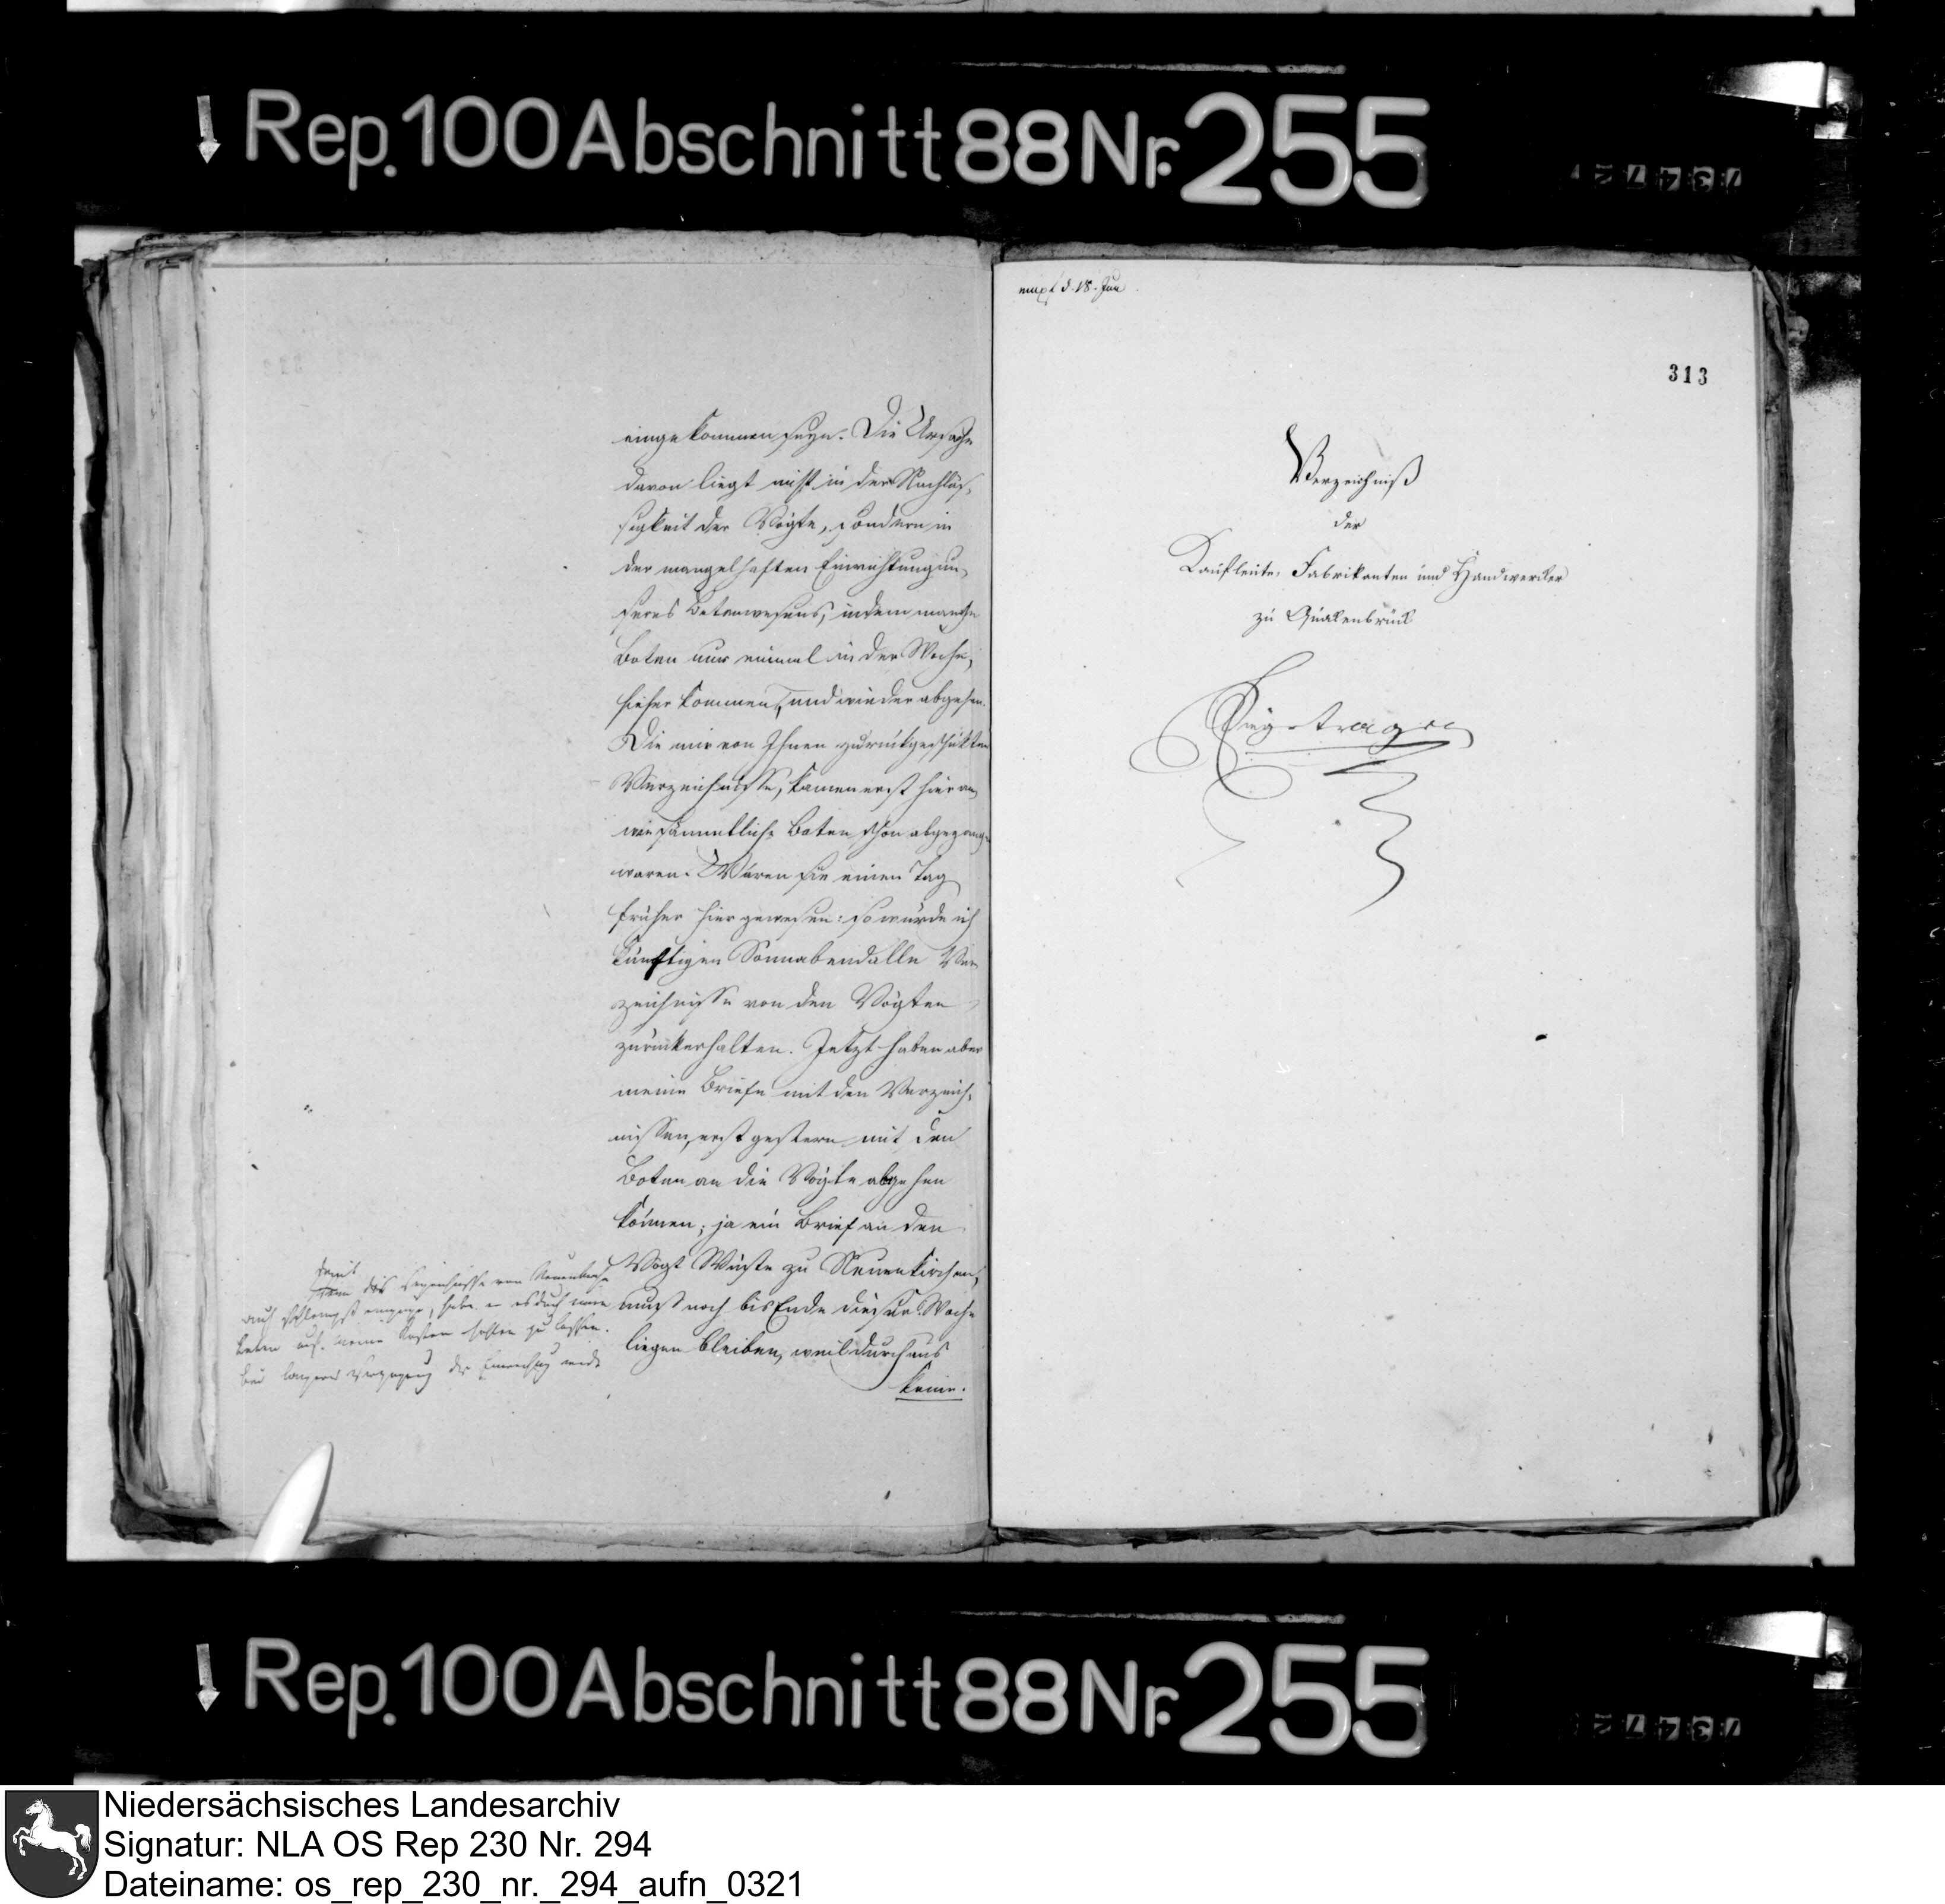 Rep. 100 Abschnitt 88 Nr. 255
eingekommen seyn. Die Ursache
davon liegt nicht in der Nachläs,
sigkeit der Vögte, sondern in
der mangelhaften Einrichtung un,
seres Botenwesens, indem manche
Boten nur einmal in der Woche,
hieher kommen, und wieder abgehen.
Die mir von Ihnen zurückgeschickten
Verzeichnisse, kamen erst hier an,
wie sämmtliche Boten schon abgegangen
waren. Wären sie einen Tag
früher hier gewesen: so würde ich
künftigen Sonnabend alle Ver
zeichnisse von den Vögten
zurückerhalten. Jetzt haben aber
meine Briefe mit den Verzeich,
nissen, erst gestern mit den
Boten an die Vögte abgehen
können; ja ein Brief an den
Vogt Wüste zu Neuenkirchen,
muß noch bis Ende dieser Woche
liegen bleiben, weil durchaus
keine.
damit das Verzeichnisse von Neuenkirche
auch, habe er es durch einen
Boten auf seine Kosten holen zu lassen.
bei längerer der
d. 18. Jun
313
Verzeichniß
der
Kaufleute, Fabrikanten und Handwerker
zu Quakenbrück
Rep. 100 Abschnitt 88 Nr. 255
Niedersächsisches Landesarchiv
Signatur: NLA OS Rep 230 Nr. 294
Dateiname: os_rep_230_nr._294_aufn_0321